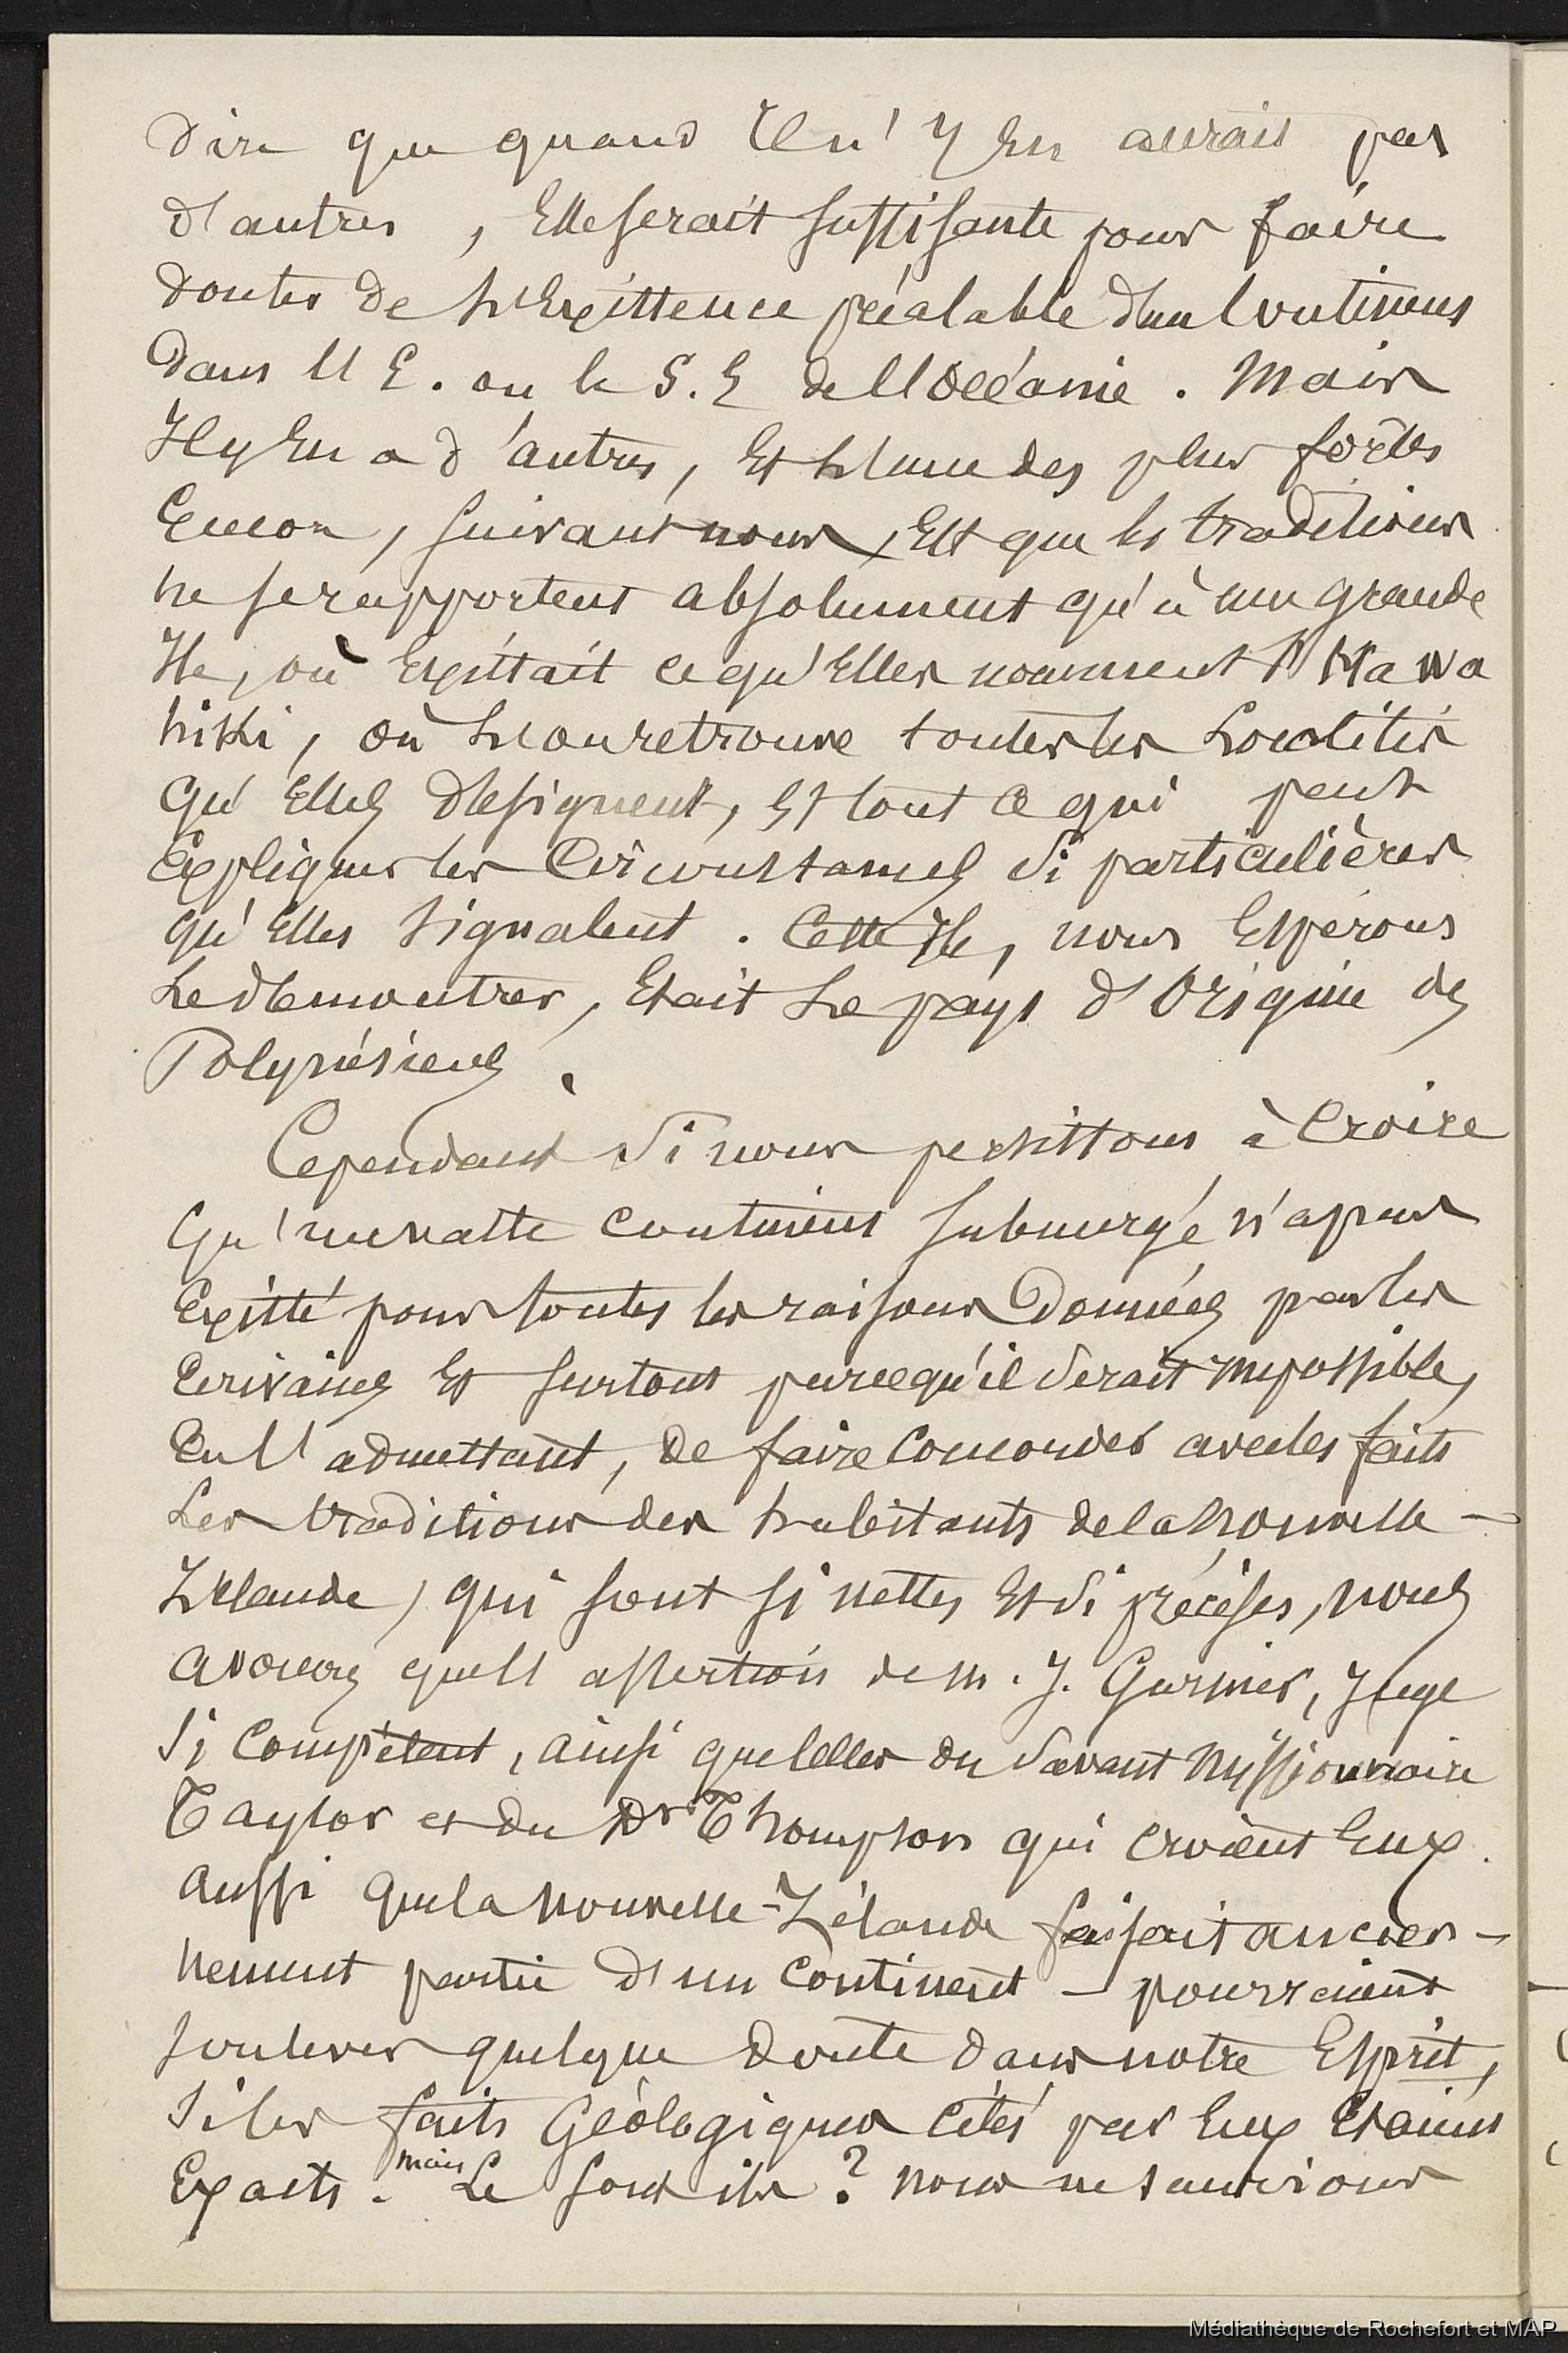 dire que quand il n'y en aurait pas
d'autres, elle serait suffisante pour faire
douter de l'existence préalable d'un continent
dans l'E. ou le S.E de l'Océanie. Mais
Il y en a d'autres, et l'une des plus fortes
encor, suivant nous, est que les traditions
ne se rapportent absolument qu'à une grande
Ile, où existait ce qu'elles nomment l'Hawa
hiki, où l'on retrouve toutes les localités
qu'elles désignent, et tout ce qui peut
expliquer les circonstances si particulières
qu'elles signalent. Cette Ile, nous espérons
le démontrer, était le pays d'origine des
Polynésiens.
Cependant si nous persistons à croire
qu'un vaste continent submergé n'a pas
existé pour toutes les raisons données par les
écrivains et surtout parcequ'il serait impossible,
en l'admettant, de faire concorder avec les faits
les traditions des habitants de la Nouvelle-
Zélande, qui sont si nettes et si précises, nous
avouons que l'assertion de M. J. Garnier, Juge
si compétent, ainsi que celles du savant missionnaire
Taylor et du Dr Thompson qui croient eux
aussi que la Nouvelle-Zélande faisait ancien-
nement partie d'un continent - pourraient
soulever quelque doute dans notre esprit,
si les faits géologiques cités par eux étaient
exacts. mais Le sont ils? nous ne saurions